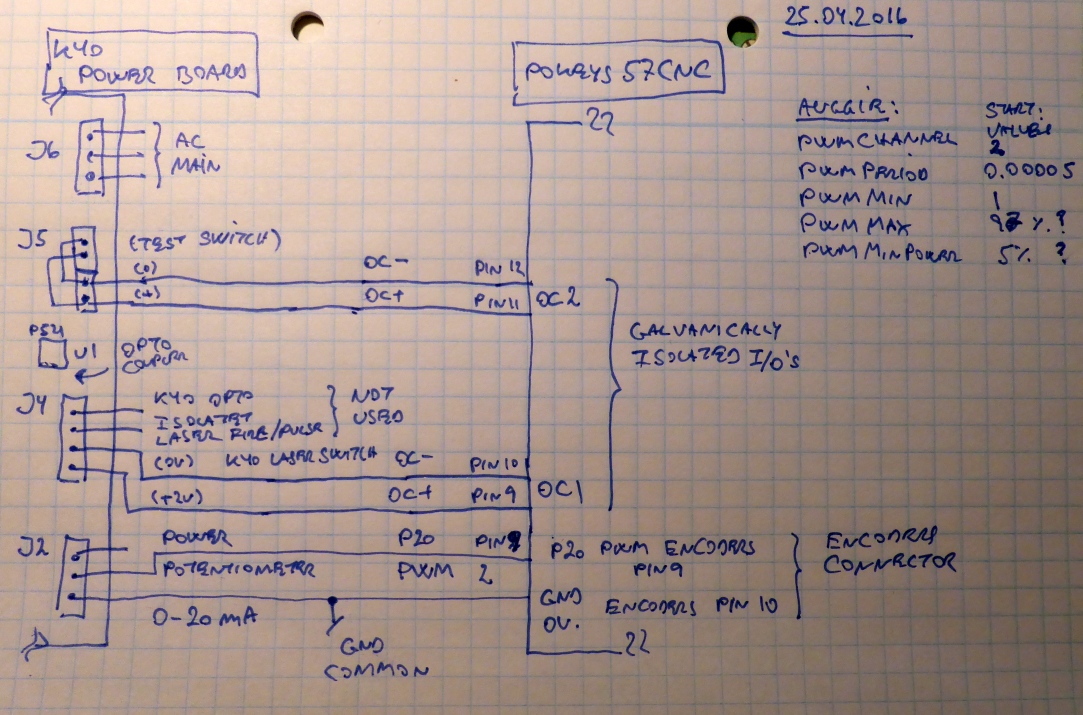 25.04.2016
K40
POWER BOARD
POKEYS 57CNC
22
J6
AC
MAIN
START:
VALUES
PWM CHANNEL 2
PWM PERIOD 0.00005
PWM MIN 1
PWM MAX %.?
PWM MIN POWER 5% ?
J5
(TEST SWITCH)
(0) OC- PIN 12
(+) OC+ PIN 11 OC2
GALVANICALLY
ISOLATED I/O'S
U1 OPTO
COUPLER
J4
K40 OPTO
ISOLATET
LASER FIRE/PULSE
NOT
USED
(0V) K40 LASER SWITCH OC- PIN 10
(+2V) OC+ PIN 9 OC1
J2
POWER P20
POTENTIOMETER PWM 2
P20 PWM ENCODERS
PIN9
ENCODERS
CONNECTOR
0-20 mA
GND ENCODERS PIN 10
0V.
GND
COMMON
22